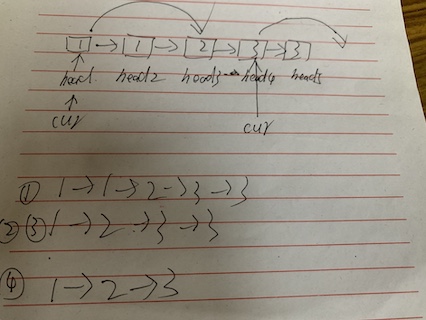 1 → 1 → 2 → 3 → 3
head head2 head3 head4 head5
cur cur
① 1 → 1 → 2 → 3 → 3
② ③ 1 → 2 → 3 → 3
④ 1 → 2 → 3